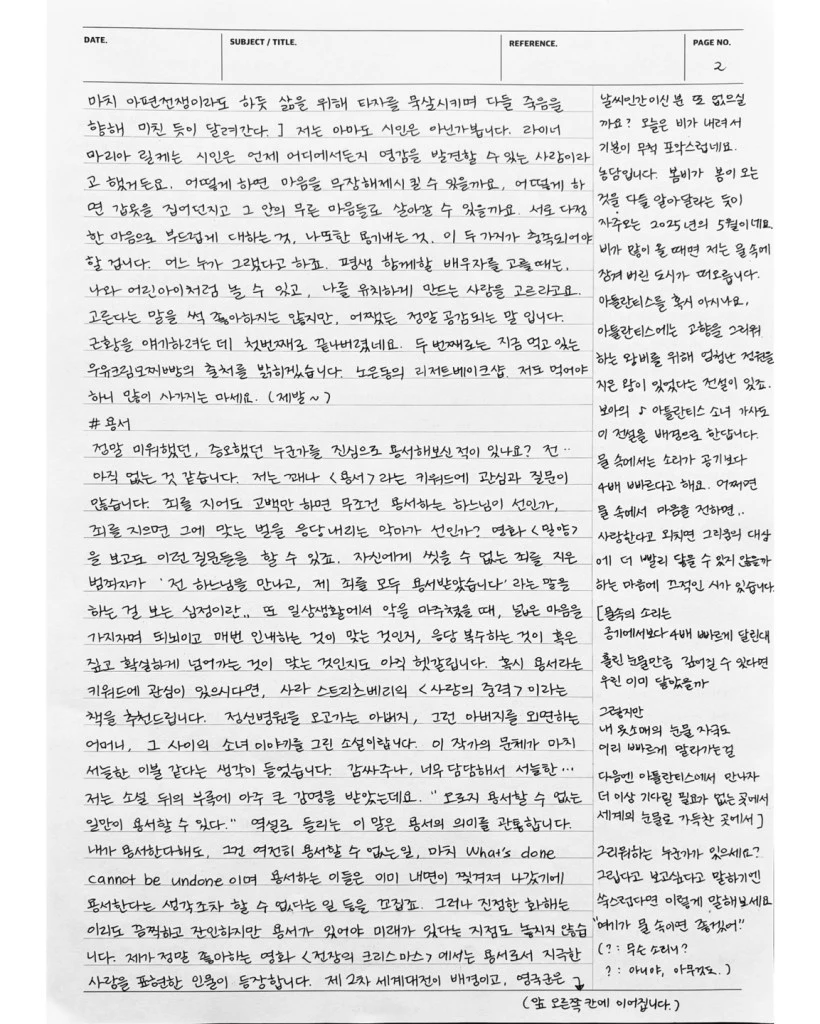 DATE.
SUBJECT / TITLE.
REFERENCE.
PAGE NO.
2
마치 아편전쟁이라도 하듯 삶을 위해 타자를 묵살시키며 다들 죽음을
향해 미친 듯이 달려간다. ] 저는 아마도 시인은 아닌가봅니다. 라이너
마리아 릴케는 시인은 언제 어디에서든지 영감을 발견할 수 있는 사람이라
고 했거든요. 어떻게 하면 마음을 무장해제시킬 수 있을까요, 어떻게 하
면 갑옷을 집어던지고 그 안의 무른 마음들로 살아갈 수 있을까요. 서로 다정
한 마음으로 부드럽게 대하는 것, 나또한 용기내는 것. 이 두 가지가 충족되어야
할 겁니다. 어느 누가 그랬다고 하죠. 평생 함께할 배우자를 고를 때는,
나와 어린아이처럼 놀 수 있고, 나를 유치하게 만드는 사람을 고르라고요.
고른다는 말을 썩 좋아하지는 않지만, 어쨌든 정말 공감되는 말 입니다.
근황을 얘기하려는 데 첫번째로 끝나버렸네요. 두 번째로는 지금 먹고 있는
우유크림모찌빵의 출처를 밝히겠습니다. 노은동의 리저트베이크샵. 저도 먹어야
하니 많이 사가지는 마세요. (제발~)
# 용서
정말 미워했던, 증오했던 누군가를 진심으로 용서해보신 적이 있나요? 전..
아직 없는 것 같습니다. 저는 꽤나 <용서>라는 키워드에 관심과 질문이
많습니다. 죄를 지어도 고백만 하면 무조건 용서하는 하느님이 선인가,
죄를 지으면 그에 맞는 벌을 응당 내리는 악마가 선인가? 영화 <밀양>
을 보고도 이런 질문들을 할 수 있죠. 자신에게 씻을 수 없는 죄를 지은
범죄자가 '전 하느님을 만나고, 제 죄를 모두 용서받았습니다' 라는 말을
하는 걸 보는 심정이란.. 또 일상생활에서 악을 마주쳤을 때, 넓은 마음을
가지자며 되뇌이고 매번 인내하는 것이 맞는 것인지, 응당 복수하는 것이 혹은
짚고 확실하게 넘어가는 것이 맞는 것인지도 아직 헷갈립니다. 혹시 용서라는
키워드에 관심이 있으시다면, 사라 스트리츠베리의 <사랑의 중력> 이라는
책을 추천드립니다. 정신병원을 오고가는 아버지, 그런 아버지를 외면하는
어머니, 그 사이의 소녀 이야기를 그린 소설이랍니다. 이 작가의 문체가 마치
서늘한 이불 같다는 생각이 들었습니다. 감싸주나, 너무 담담해서 서늘한…
저는 소설 뒤의 부록에 아주 큰 감명을 받았는데요. "오로지 용서할 수 없는
일만이 용서할 수 있다." 역설로 들리는 이 말은 용서의 의미를 관통합니다.
내가 용서한다해도, 그건 여전히 용서할 수 없는 일, 마치 What's done
cannot be undone 이며 용서하는 이들은 이미 내면이 찢겨져 나갔기에
용서한다는 생각조차 할 수 없다는 일 등을 꼬집죠. 그러나 진정한 화해는
이리도 끔찍하고 잔인하지만 용서가 있어야 미래가 있다는 지점도 놓치지 않습
니다. 제가 정말 좋아하는 영화 <전장의 크리스마스> 에서는 용서로서 지극한
사랑을 표현한 인물이 등장합니다. 제 2차 세계대전이 배경이고, 영국군은 ↓
(앞 오른쪽 칸에 이어집니다.)
날씨인간이신 분 또 없으실
까요? 오늘은 비가 내려서
기분이 무척 포악스럽네요.
농담입니다. 봄비가 봄이 오는
것을 다들 알아달라는 듯이
자주오는 2025년의 5월이네요.
비가 많이 올 때면 저는 물 속에
잠겨 버린 도시가 떠오릅니다.
아틀란티스를 혹시 아시나요,
아틀란티스에는 고향을 그리워
하는 왕비를 위해 엄청난 정원을
지은 왕이 있었다는 전설이 있죠.
보아의 ♪ 아틀란티스 소녀 가사도
이 전설을 배경으로 한답니다.
물 속에서는 소리가 공기보다
4배 빠르다고 해요. 어쩌면
물 속에서 마음을 전하면..
사랑한다고 외치면 그리움의 대상
에 더 빨리 닿을 수 있지 않을까
하는 마음에 끄적인 시가 있습니다.
[물속의 소리는
공기에서보다 4배 빠르게 달린대
흘린 눈물만큼 깊어질 수 있다면
우린 이미 닿았을까
그렇지만
내 옷소매의 눈물 자국도
이리 빠르게 말라가는걸
다음엔 아틀란티스에서 만나자
더 이상 기다릴 필요가 없는 곳에서
세계의 눈물로 가득찬 곳에서 ]
그리워하는 누군가가 있으세요?
그립다고 보고싶다고 말하기엔
쑥스럽다면 이렇게 말해보세요
"여기가 물 속이면 좋겠어!"
(? : 무슨 소리니?
? : 아니야, 아무것도.)